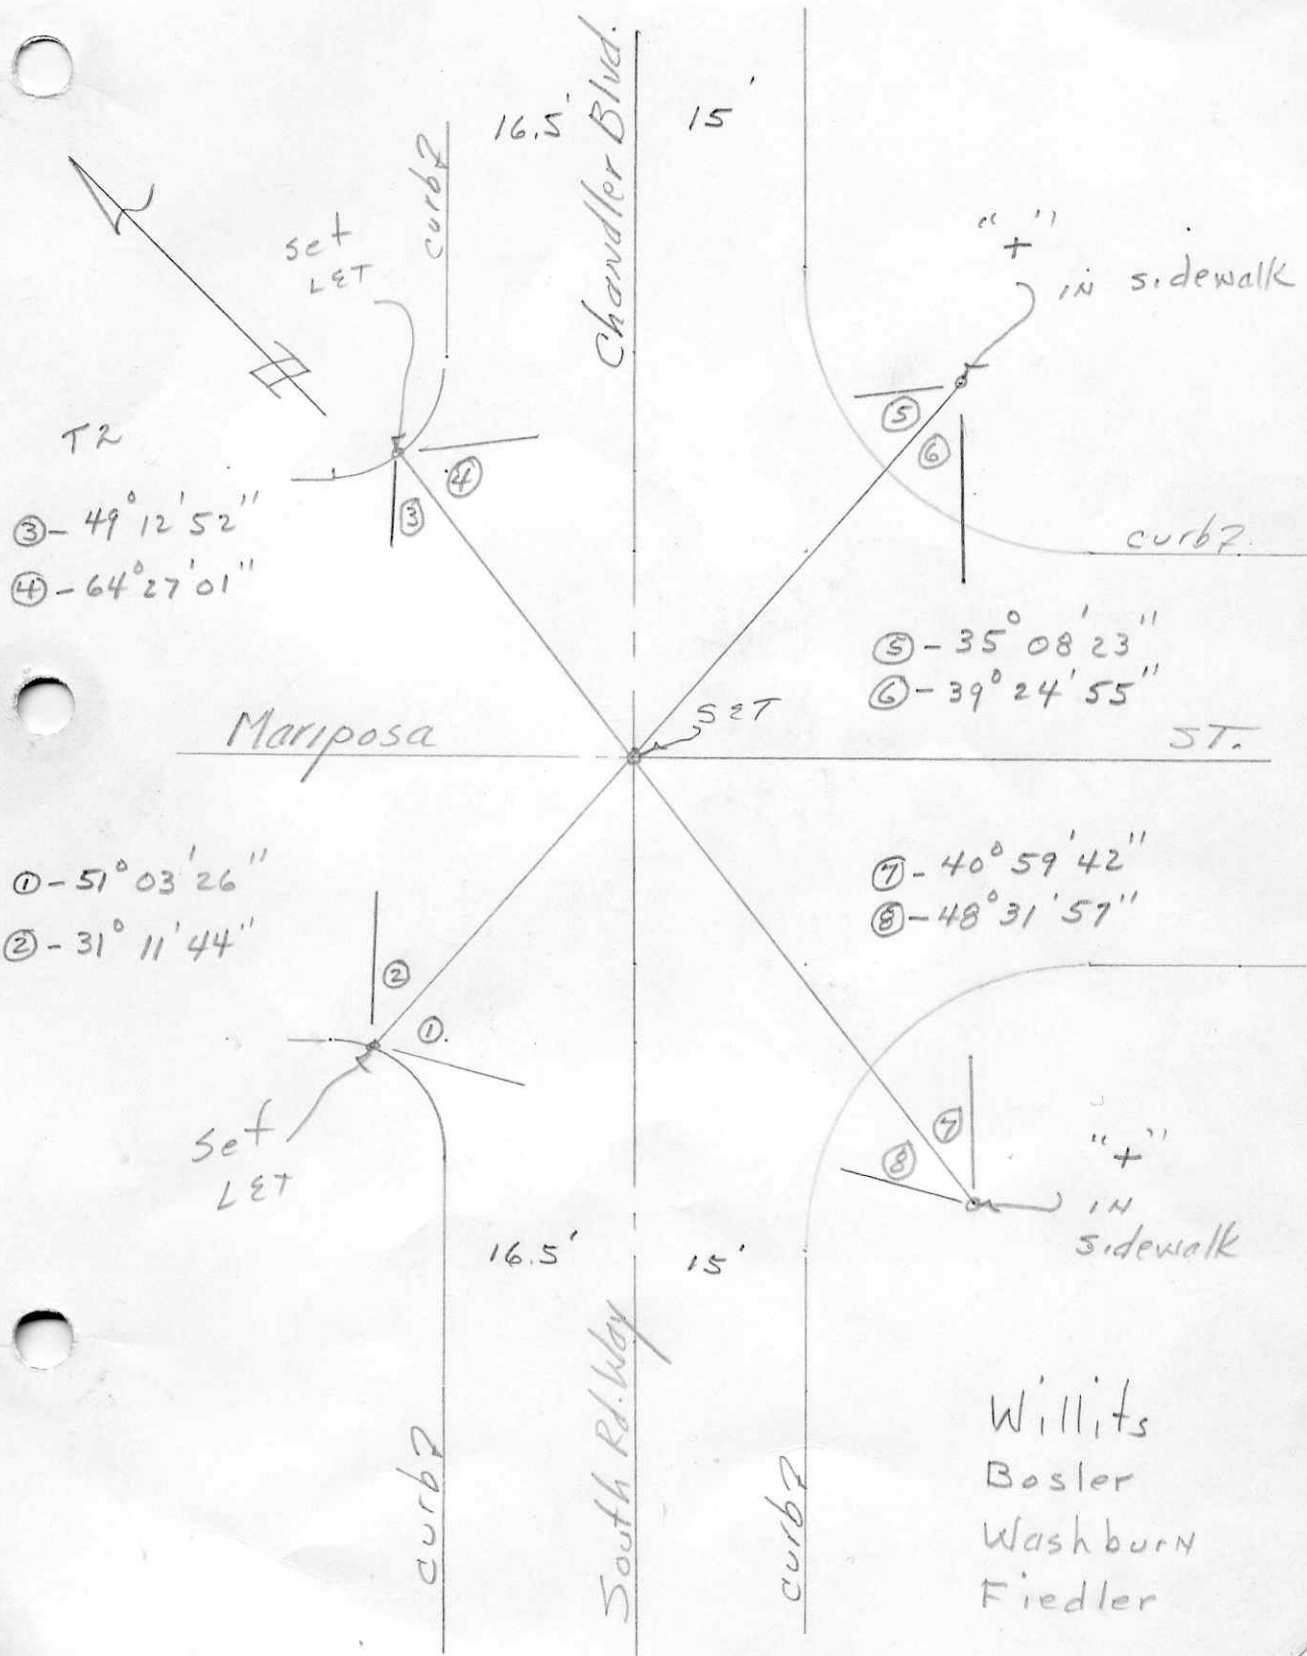 16.5'
Chandler Blvd.
15'
curb7
set
LET
"+"
IN sidewalk
T2
③- 49°12'52"
④- 64°27'01"
④
③
⑤
⑥
curb7
⑤- 35°08'23"
⑥- 39°24'55"
Mariposa
SET
ST.
①- 51°03'26"
②- 31°11'44"
⑦- 40°59'42"
⑧- 48°31'57"
②
①
⑦
⑧
set
LET
"+"
IN
sidewalk
16.5'
15'
curb7
South Rd. Way
curb7
Willits
Bosler
Washburn
Fiedler